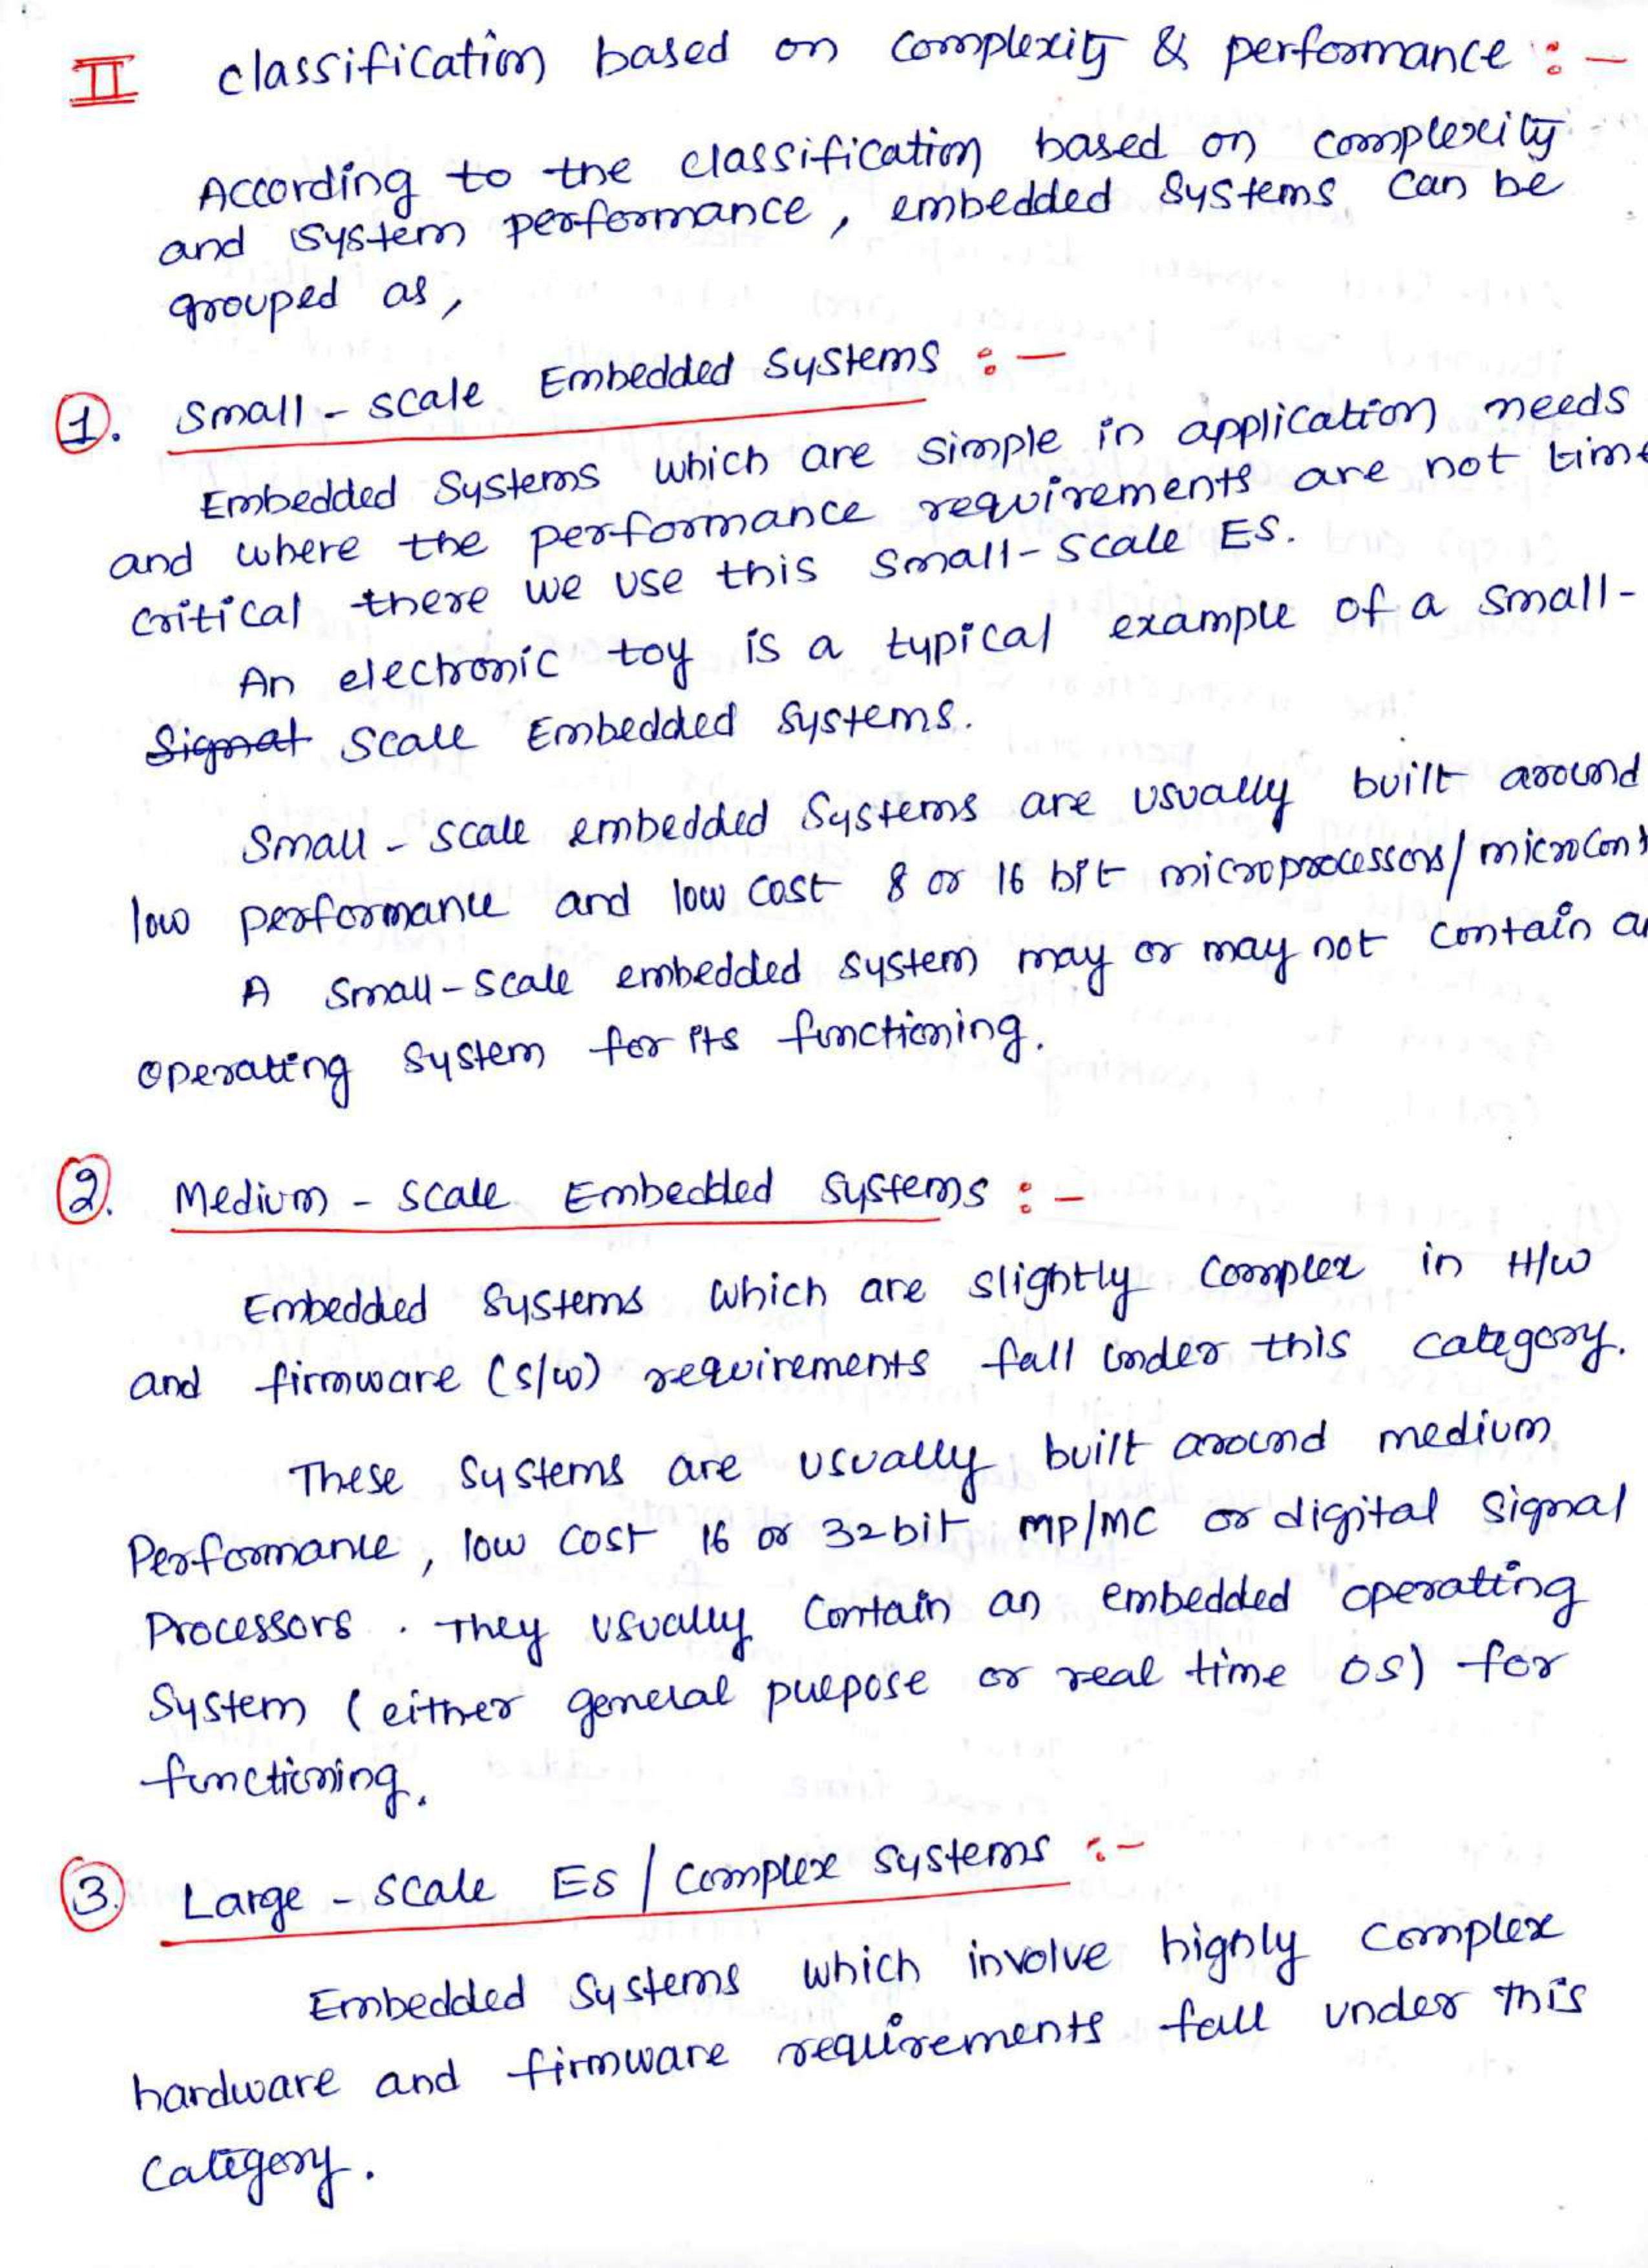 II classification based on complexity & performance :-
According to the classification based on complexity
and system performance, embedded systems can be
grouped as,
1. Small-scale Embedded Systems :-
Embedded Systems which are simple in application needs
and where the performance requirements are not time
critical there we use this small-scale ES.
An electronic toy is a typical example of a small-
Signal scale Embedded systems.
Small-scale embedded systems are usually built around
low performance and low cost 8 or 16 bit microprocessors/microcont
A small-scale embedded system may or may not contain an
operating system for its functioning.
2. Medium-scale Embedded systems :-
Embedded systems which are slightly complex in H/w
and firmware (s/w) requirements fall under this category.
These systems are usually built around medium
Performance, low cost 16 or 32bit MP/MC or digital signal
Processors. They usually contain an embedded operating
System (either general purpose or real time OS) for
functioning.
3. Large-scale ES/complex systems :-
Embedded Systems which involve highly complex
hardware and firmware requirements fall under this
category.